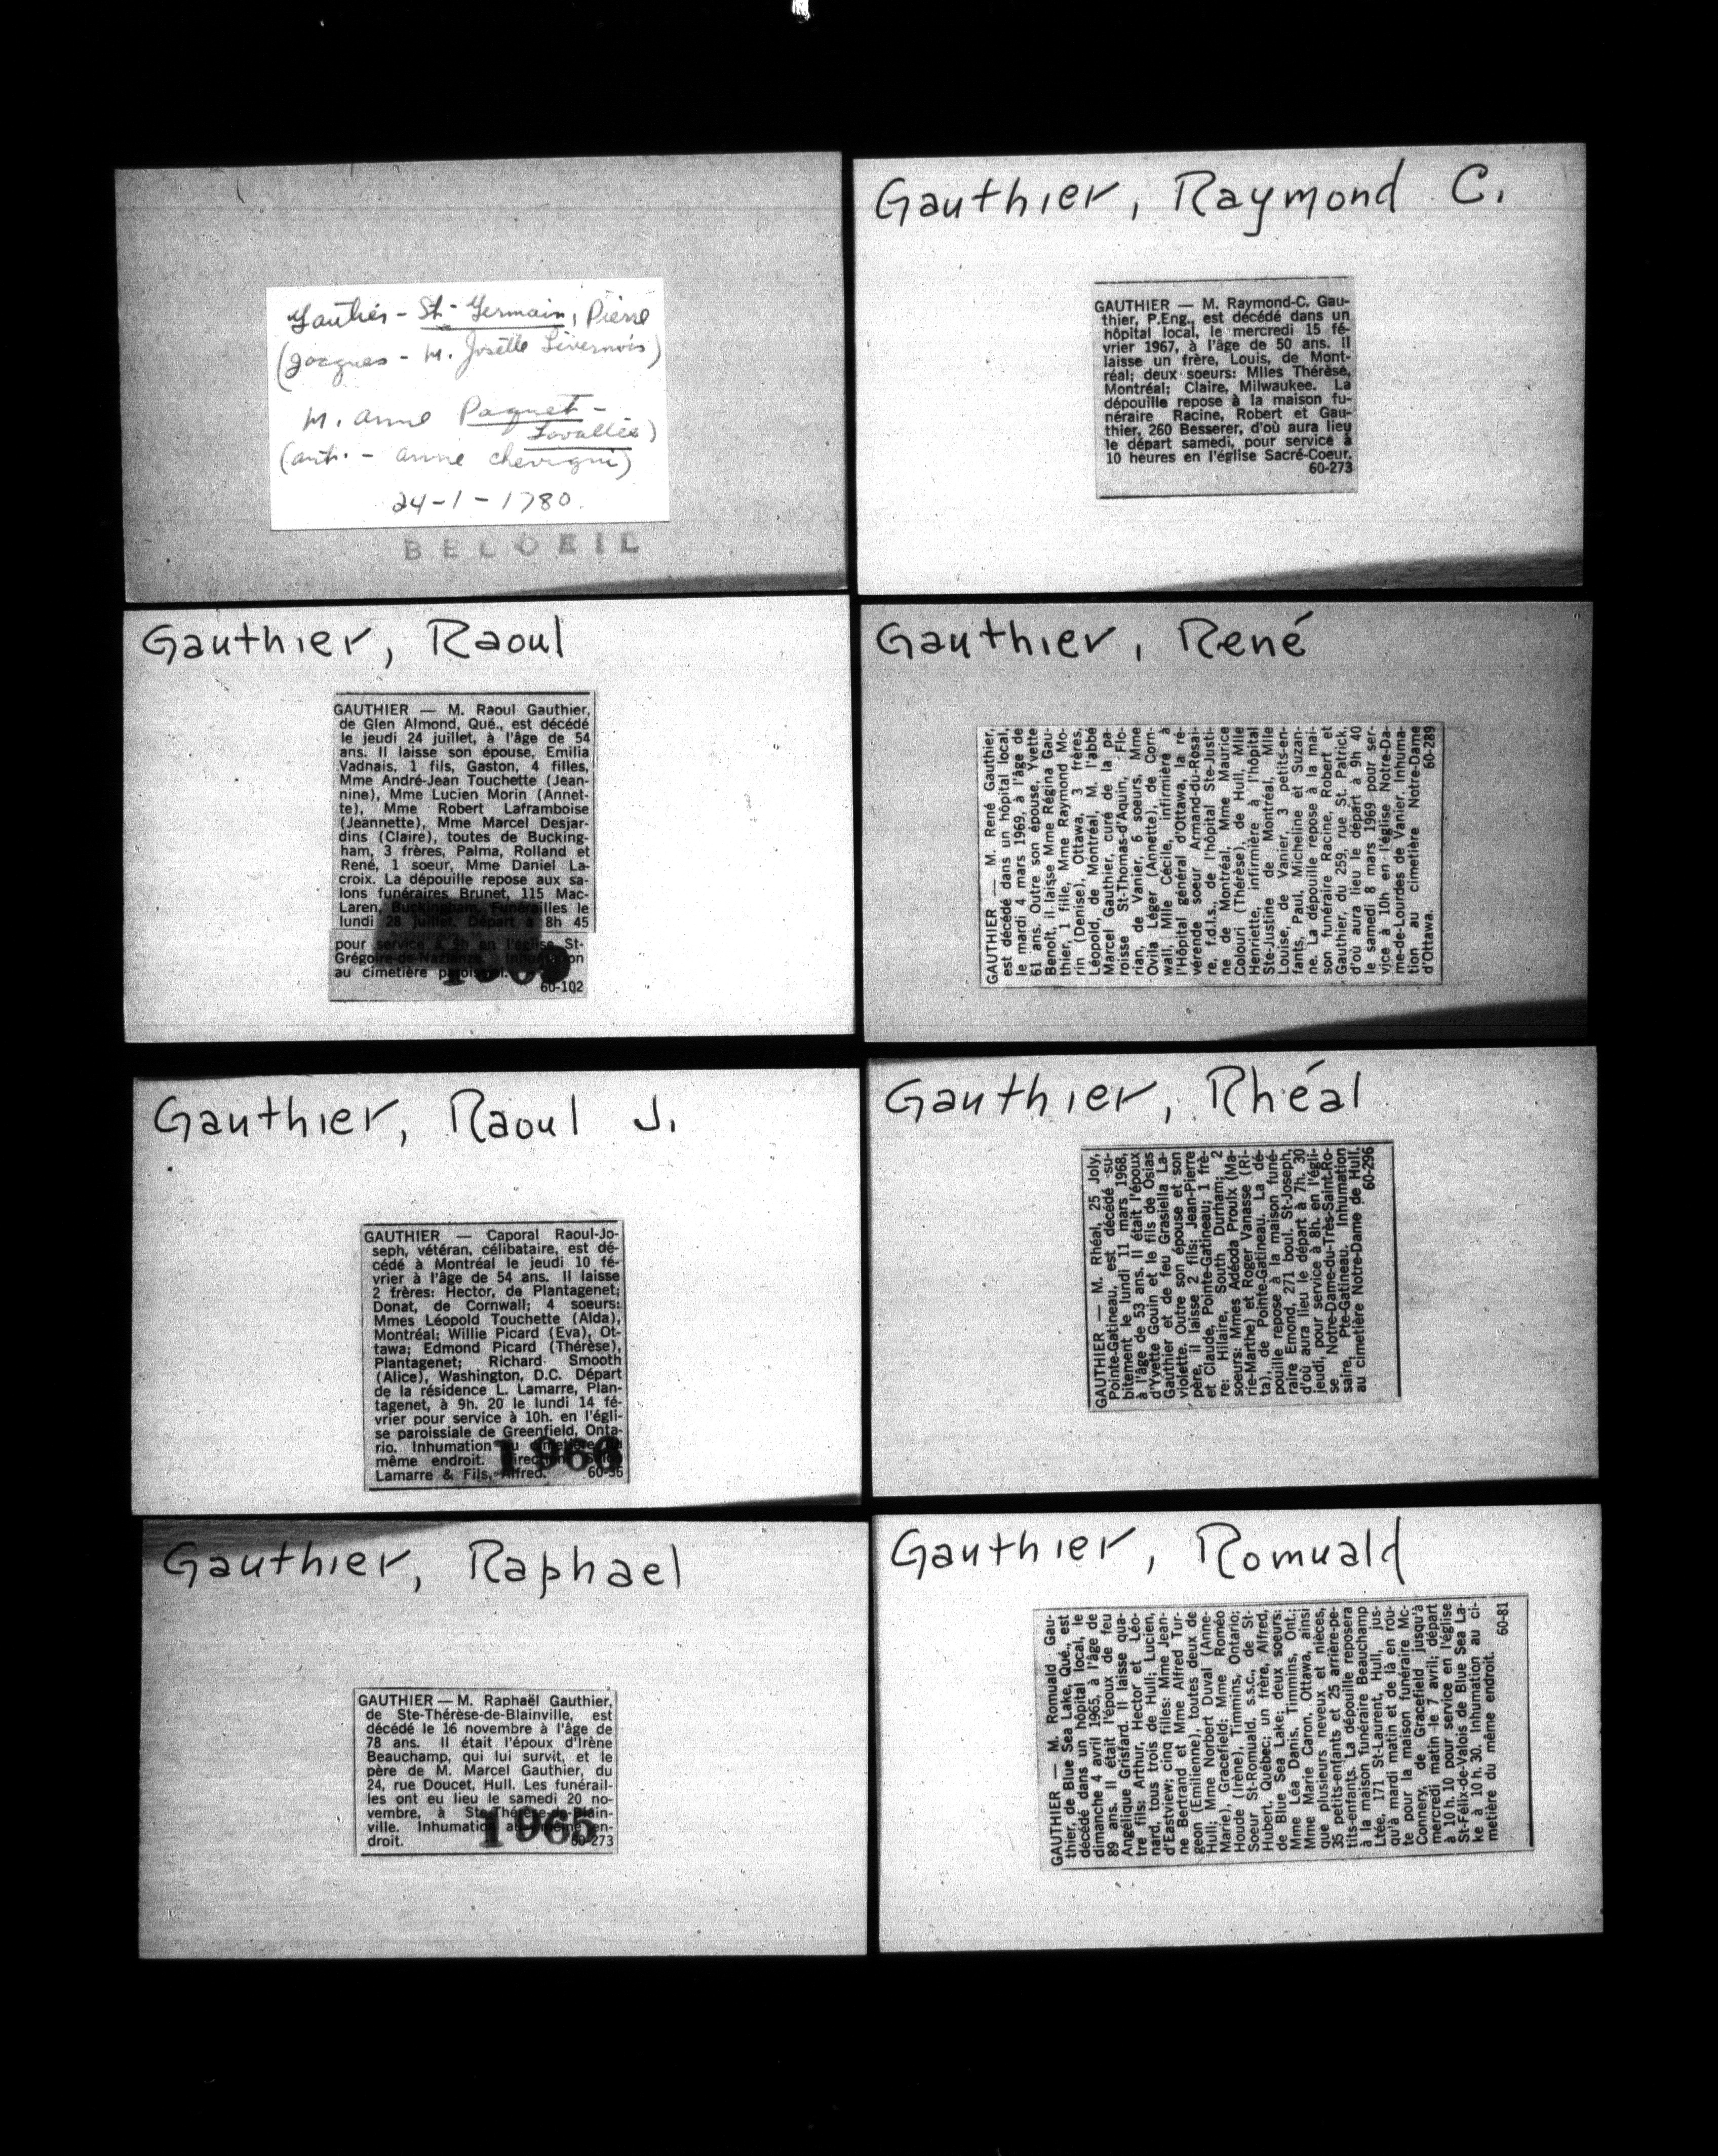 Gauthier - St-Germain, Pierre
(Jacques - M. Josette Livernois)
M. Anne Paquet -
Lavallée)
(Ant. - Anne Chevigni)
24-1-1780.
BELOEIL
Gauthier, Raoul
GAUTHIER — M. Raoul Gauthier,
de Glen Almond, Qué., est décédé
le jeudi 24 juillet, à l'âge de 54
ans. Il laisse son épouse, Emilia
Vadnais, 1 fils, Gaston, 4 filles,
Mme André-Jean Touchette (Jean-
nine), Mme Lucien Morin (Annet-
te), Mme Robert Laframboise
(Jeannette), Mme Marcel Desjar-
dins (Claire), toutes de Bucking-
ham, 3 frères, Palma, Rolland et
René, 1 soeur, Mme Daniel La-
croix. La dépouille repose aux sa-
lons funéraires Brunet, 115 Mac-
Laren, Buckingham. Funérailles le
lundi 28 juillet. Départ à 8h 45
pour service à 9h en l'église St-
Grégoire-de-Nazianze. Inhumation
au cimetière paroissial.
60-102
Gauthier, Raoul J.
GAUTHIER — Caporal Raoul-Jo-
seph, vétéran, célibataire, est dé-
cédé à Montréal le jeudi 10 fé-
vrier à l'âge de 54 ans. Il laisse
2 frères: Hector, de Plantagenet;
Donat, de Cornwall; 4 soeurs:
Mmes Léopold Touchette (Alda),
Montréal; Willie Picard (Eva), Ot-
tawa; Edmond Picard (Thérèse),
Plantagenet; Richard Smooth
(Alice), Washington, D.C. Départ
de la résidence L. Lamarre, Plan-
tagenet, à 9h. 20 le lundi 14 fé-
vrier pour service à 10h. en l'égli-
se paroissiale de Greenfield, Onta-
rio. Inhumation au cimetière du
même endroit. Direction
Lamarre & Fils, Alfred. 60-36
1966
Gauthier, Raphael
GAUTHIER — M. Raphaël Gauthier,
de Ste-Thérèse-de-Blainville, est
décédé le 16 novembre à l'âge de
78 ans. Il était l'époux d'Irène
Beauchamp, qui lui survit, et le
père de M. Marcel Gauthier, du
24, rue Doucet, Hull. Les funérail-
les ont eu lieu le samedi 20 no-
vembre, à Ste-Thérèse-de-Blain-
ville. Inhumation au même en-
droit. 60-273
1965
Gauthier, Raymond C.
GAUTHIER — M. Raymond-C. Gau-
thier, P.Eng., est décédé dans un
hôpital local, le mercredi 15 fé-
vrier 1967, à l'âge de 50 ans. Il
laisse un frère, Louis, de Mont-
réal; deux soeurs: Mlles Thérèse,
Montréal; Claire, Milwaukee. La
dépouille repose à la maison fu-
néraire Racine, Robert et Gau-
thier, 260 Besserer, d'où aura lieu
le départ samedi, pour service à
10 heures en l'église Sacré-Coeur.
60-273
Gauthier, René
GAUTHIER — M. René Gauthier,
est décédé dans un hôpital local,
le mardi 4 mars 1969, à l'âge de
61 ans. Outre son épouse, Yvette
Benoît, il laisse Mme Régina Gau-
thier, 1 fille, Mme Raymond Mo-
rin (Denise), Ottawa, 3 frères,
Léopold, de Montréal, M. l'abbé
Marcel Gauthier, curé de la pa-
roisse St-Thomas-d'Aquin, Flo-
rian, de Vanier, 6 soeurs, Mme
Ovila Léger (Annette), de Corn-
wall, Mlle Cécile, infirmière à
l'Hôpital général d'Ottawa, la ré-
vérende soeur Armand-du-Rosai-
re, f.d.l.s., de l'hôpital Ste-Justi-
ne de Montréal, Mme Maurice
Colouri (Thérèse), de Hull, Mlle
Henriette, infirmière à l'hôpital
Ste-Justine de Montréal, Mlle
Louise, de Vanier, 3 petits-en-
fants, Paul, Micheline et Suzan-
ne. La dépouille repose à la mai-
son funéraire Racine, Robert et
Gauthier, du 259, rue St. Patrick,
d'où aura lieu le départ à 9h 40
le samedi 8 mars 1969 pour ser-
vice à 10h en l'église Notre-Da-
me-de-Lourdes de Vanier. Inhuma-
tion au cimetière Notre-Dame
d'Ottawa. 60-289
Gauthier, Rhéal
GAUTHIER — M. Rhéal, 25 Joly,
Pointe-Gatineau, est décédé su-
bitement le lundi 11 mars 1968,
à l'âge de 53 ans. Il était l'époux
d'Yvette Gouin et le fils de Osias
Gauthier et de feu Grasiella La-
violette. Outre son épouse et son
père, il laisse 2 fils: Jean-Pierre
et Claude, Pointe-Gatineau; 1 frè-
re: Hilaire, South Durham; 2
soeurs: Mmes Adéoda Proulx (Ma-
rie-Marthe) et Roger Vanasse (Ri-
ta), de Pointe-Gatineau. La dé-
pouille repose à la maison funé-
raire Emond, 271 boul. St-Joseph,
d'où aura lieu le départ à 7h. 30
jeudi, pour service à 8h. en l'égli-
se Notre-Dame-du-Très-Saint-Ro-
saire, Pte-Gatineau. Inhumation
au cimetière Notre-Dame de Hull.
60-296
Gauthier, Romuald
GAUTHIER — M. Romuald Gau-
thier, de Blue Sea Lake, Qué., est
décédé dans un hôpital local, le
dimanche 4 avril 1965, à l'âge de
89 ans. Il était l'époux de feu
Angélique Grisfard. Il laisse qua-
tre fils: Arthur, Hector et Léo-
nard, tous trois de Hull; Lucien,
d'Eastview; cinq filles: Mme Jean-
ne Bertrand et Mme Alfred Tur-
geon (Emilienne), toutes deux de
Hull; Mme Norbert Duval (Anne-
Marie), Gracefield; Mme Roméo
Houde (Irène), Timmins, Ontario;
Soeur St-Romuald, s.s.c., de St-
Hubert, Québec; un frère, Alfred,
de Blue Sea Lake; deux soeurs:
Mme Léa Danis, Timmins, Ont.;
Mme Marie Caron, Ottawa, ainsi
que plusieurs neveux et nièces,
35 petits-enfants et 25 arrière-pe-
tits-enfants. La dépouille reposera
à la maison funéraire Beauchamp
Ltée, 171 St-Laurent, Hull, jus-
qu'à mardi matin et de là en rou-
te pour la maison funéraire Mc-
Connery, de Gracefield jusqu'à
mercredi matin le 7 avril; départ
à 10 h. 10 pour service en l'église
St-Félix-de-Valois de Blue Sea La-
ke à 10 h. 30. Inhumation au ci-
metière du même endroit.
60-81